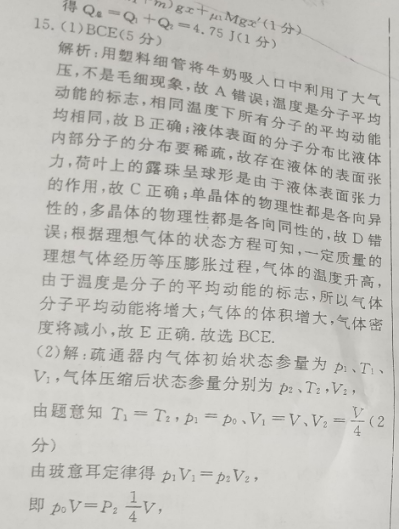 +m)gx+μ₁Mgx′(1分)
得Q总=Q₁+Q₂=4.75 J(1分)
15.(1)BCE(5分)
解析:用塑料细管将牛奶吸入口中利用了大气
压,不是毛细现象,故A错误;温度是分子平均
动能的标志,相同温度下所有分子的平均动能
均相同,故B正确;液体表面的分子分布比液体
内部分子的分布要稀疏,故存在液体的表面张
力,荷叶上的露珠呈球形是由于液体表面张力
的作用,故C正确;单晶体的物理性都是各向异
性的,多晶体的物理性都是各向同性的,故D错
误;根据理想气体的状态方程可知,一定质量的
理想气体经历等压膨胀过程,气体的温度升高,
由于温度是分子的平均动能的标志,所以气体
分子平均动能将增大;气体的体积增大,气体密
度将减小,故E正确.故选BCE.
(2)解:疏通器内气体初始状态参量为p₁、T₁、
V₁,气体压缩后状态参量分别为p₂、T₂,V₂,
由题意知 T₁=T₂,p₁=p₀、V₁=V、V₂=V/4(2
分)
由玻意耳定律得p₁V₁=p₂V₂,
即p₀V=P₂ 1/4 V,